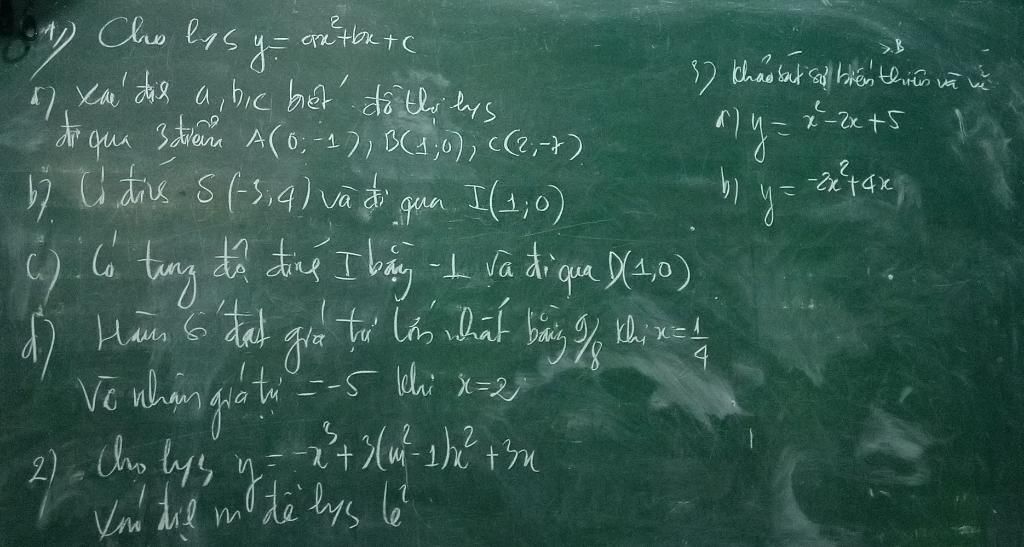 1) Cho h/s y = ax²+bx+c
a) xác định a, b, c biết đồ thị h/s
đi qua 3 điểm A(0;-1), B(1;0), C(2,-7)
b) Có đỉnh S(-3,4) và đi qua I(1;0)
c) Có tung độ đỉnh I bằng -1 và đi qua D(1,0)
d) Hàm số đạt giá trị lớn nhất bằng 9/8 khi x=1/4
Và nhận giá trị = -5 khi x=2
2) Cho h/s y = -x³+3(m²-1)x²+3x
Xác định m để h/s lẻ
3) khảo sát sự biến thiên và vẽ
a) y = x²-2x+5
b) y = -2x²+4x